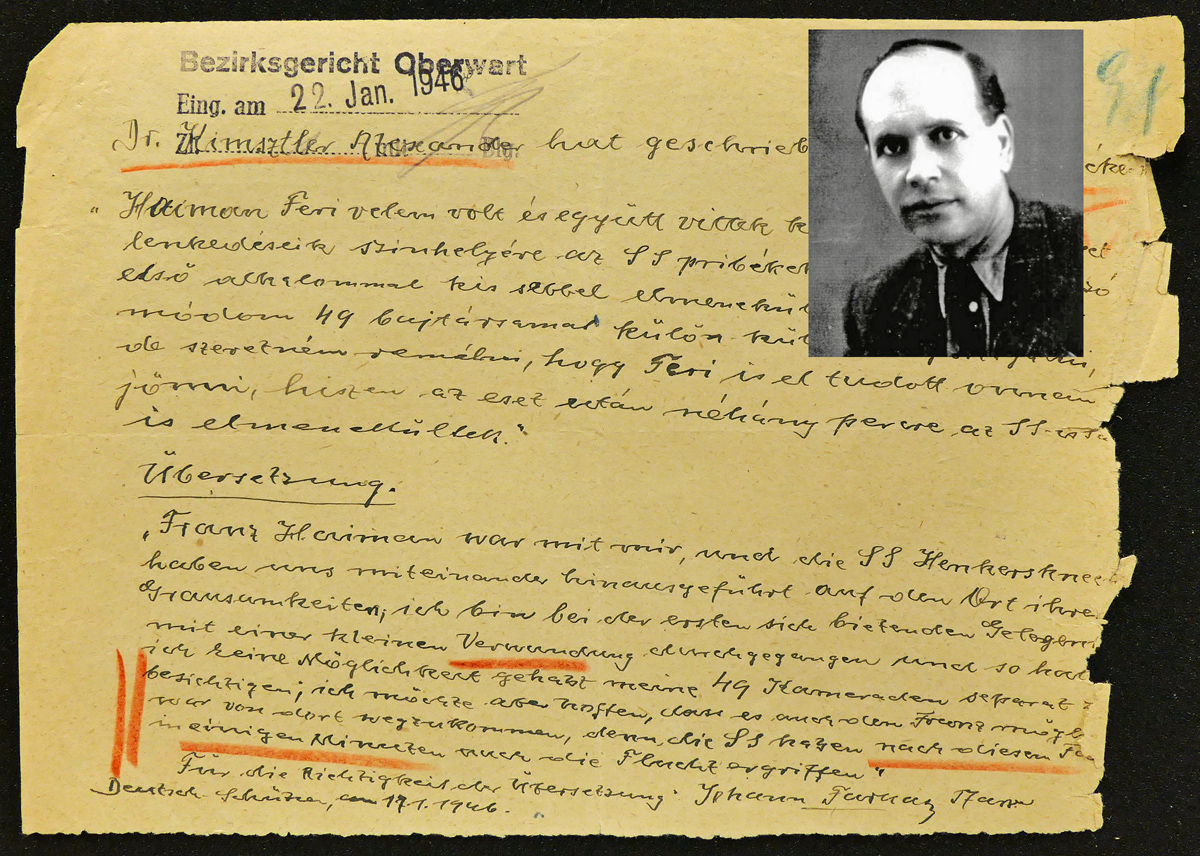 Bezirksgericht Oberwart
Eing. am 22. Jan. 1946
Dr. Kimsztler Alexander hat geschrieb
"Haiman Feri velem volt és együtt vittek k
lenkedéseik szinhelyére az SS pribékek
első alkalommal kis sebbel elmenekül
módom 49 bajtársamat külön kül
de szeretném remélni, hogy Feri is el tudott onnan
jönni, hiszen az eset után néhány percre az SS-
is elmenekültek."
Übersetzung.
"Franz Haiman war mit mir, und die SS Henkersknec
haben uns miteinander hinausgeführt auf den Ort ihre
Grausamkeiten; ich bin bei der ersten sich bietenden Gelegen
mit einer kleinen Verwundung durchgegangen und so hab
ich keine Möglichkeit gehabt meine 49 Kameraden separat z
besichtigen; ich möchte aber hoffen, dass es auch den Franz mögl
war von dort wegzukommen, denn die SS haben nach diesem
in einigen Minuten auch die Flucht ergriffen"
Für die Richtigkeit der Übersetzung: Johann Farkas
Deutsch-Schützen, am 17.1.1946.